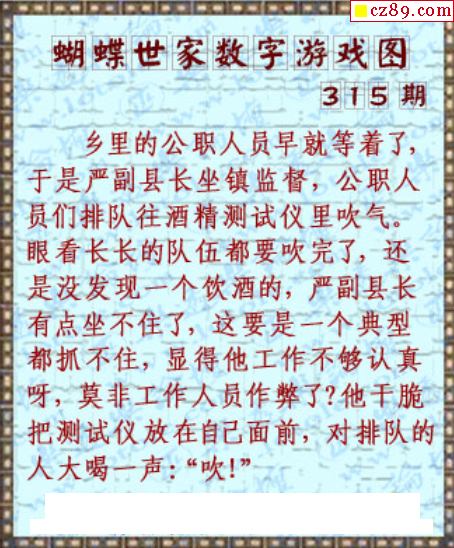 cz89.com
蝴蝶世家数字游戏图
315期
乡里的公职人员早就等着了,
于是严副县长坐镇监督，公职人
员们排队往酒精测试仪里吹气。
眼看长长的队伍都要吹完了, 还
是没发现一个饮酒的, 严副县长
有点坐不住了, 这要是一个典型
都抓不住, 显得他工作不够认真
呀, 莫非工作人员作弊了?他干脆
把测试仪放在自己面前, 对排队的
人大喝一声:“吹!”